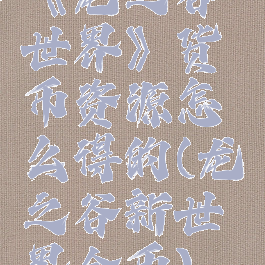 《龙之谷
世界》货
币资源怎
么得的(龙
之谷新世
界金币)